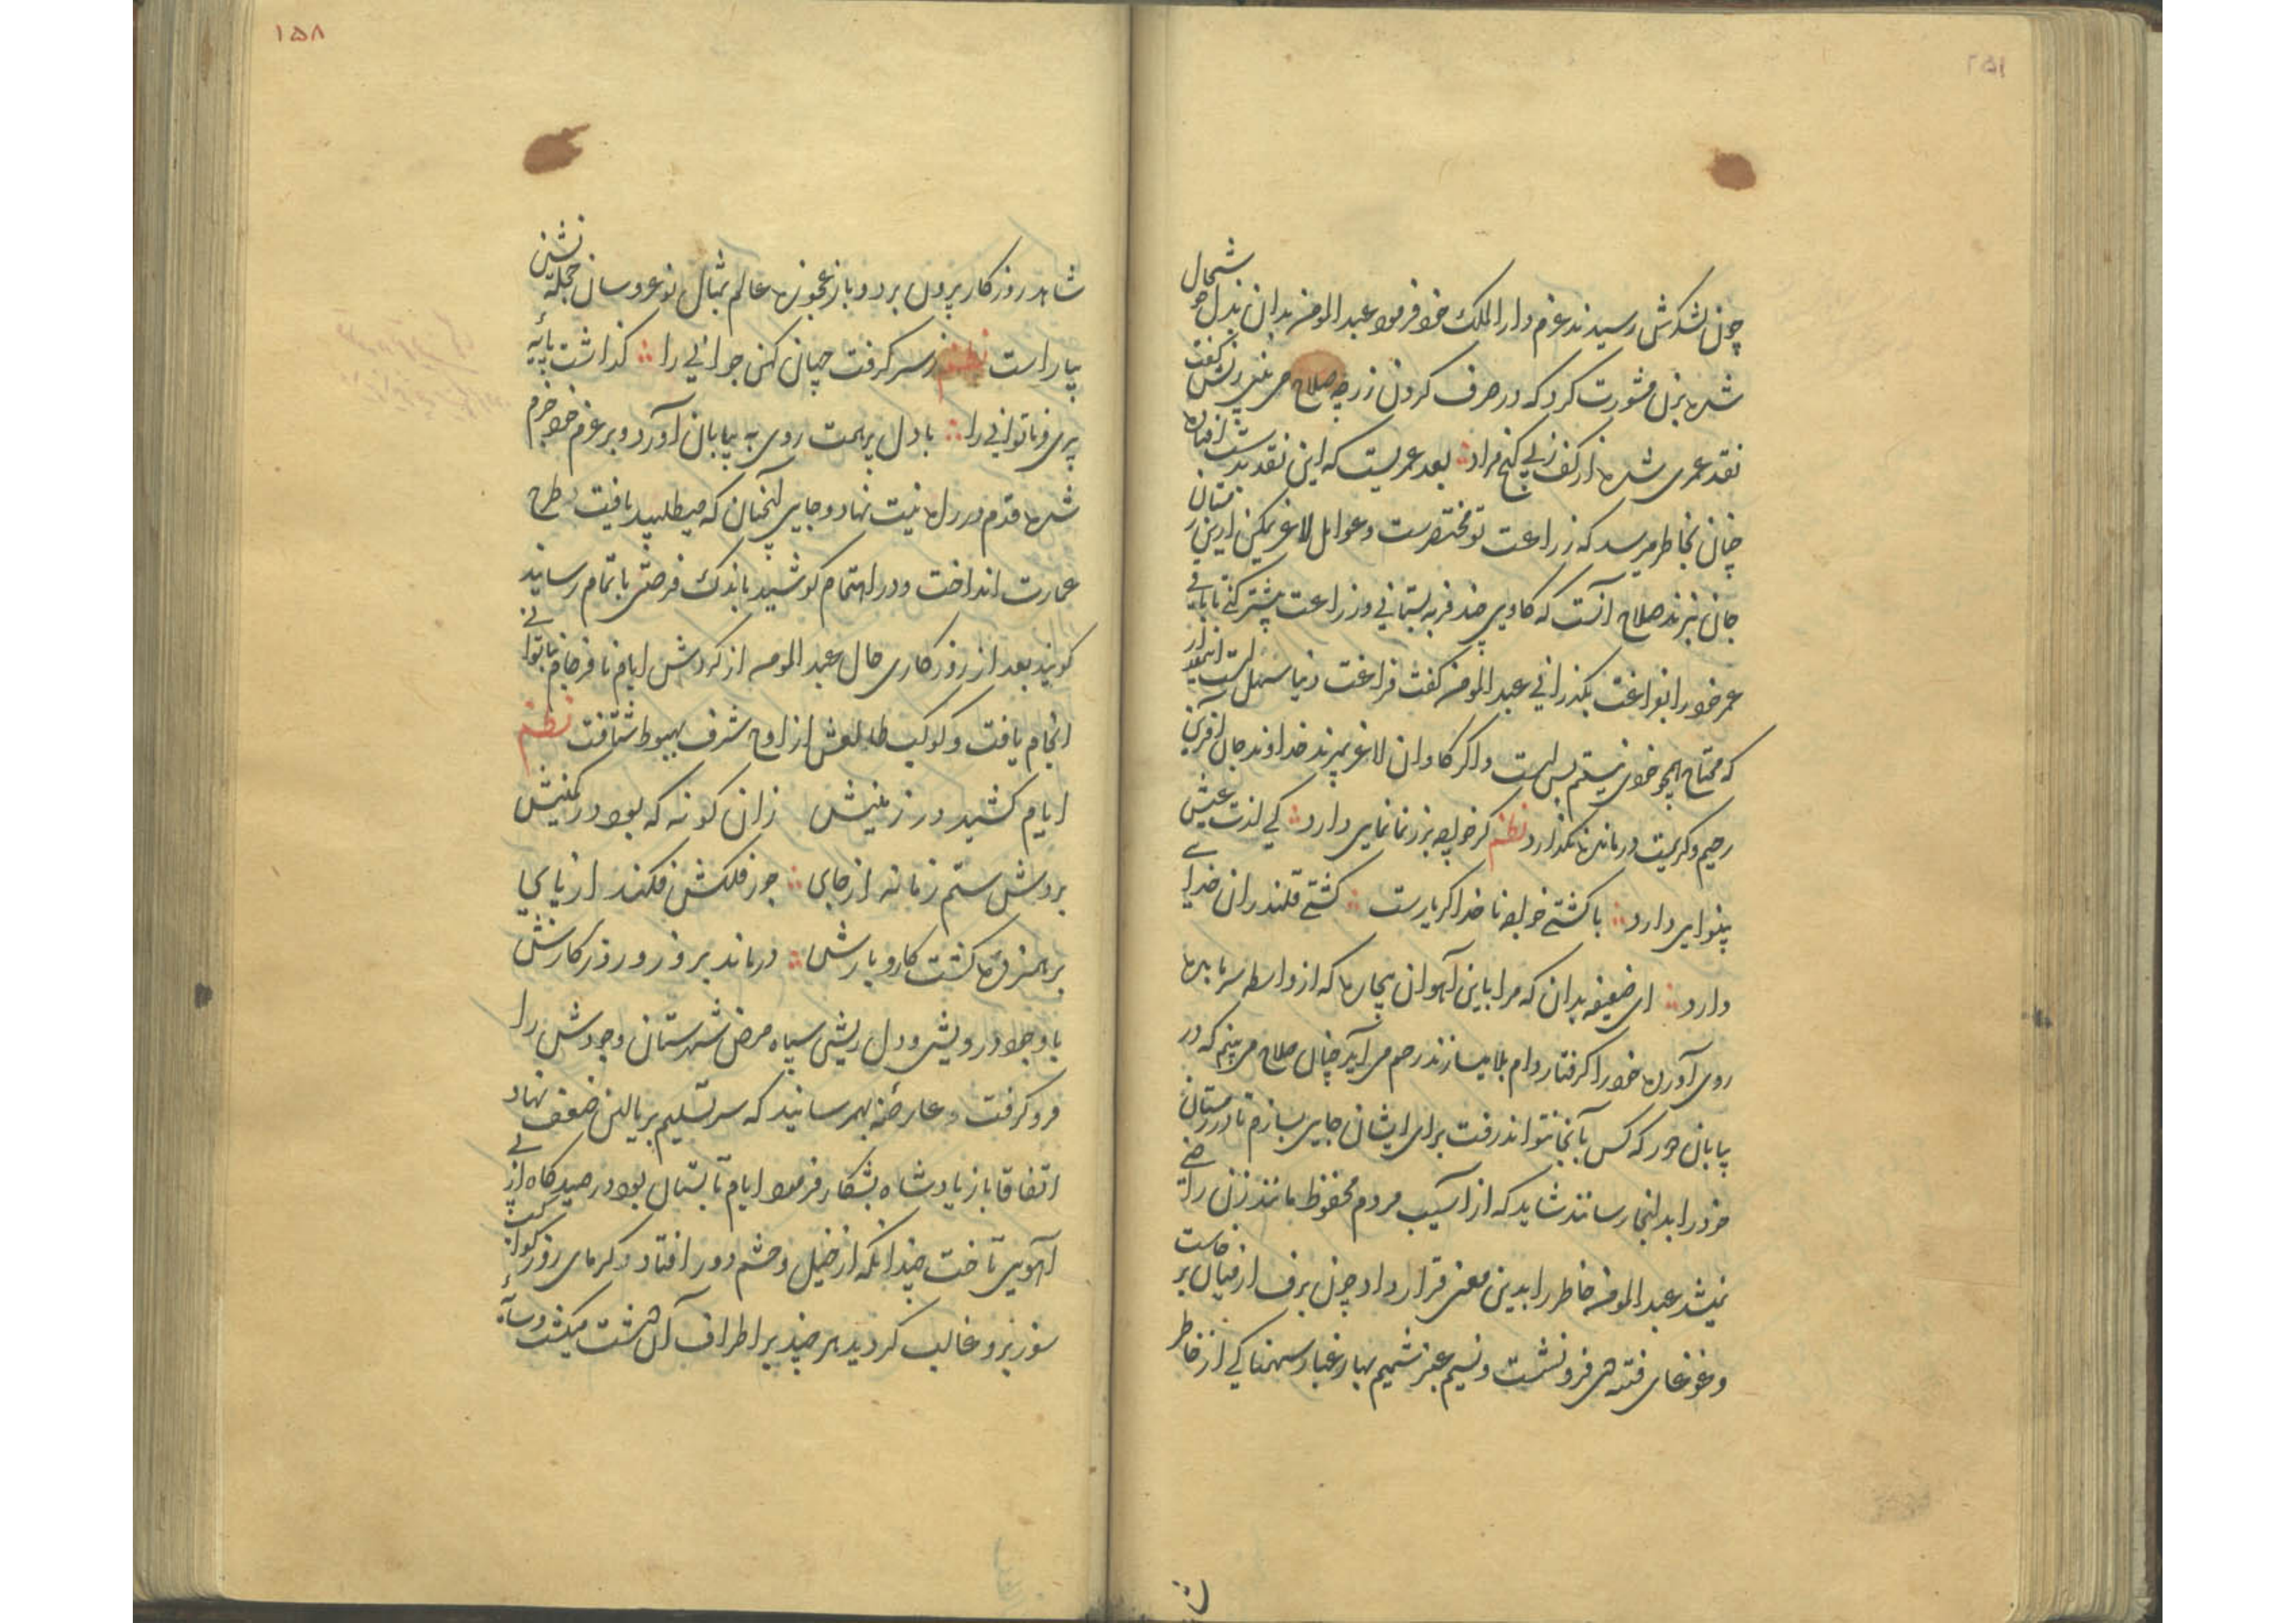 چون لشکرش رسیدند عزم دار الملک خود فرمود عبد المومن بدان بذل خوشحال
شده بزن مشورت کرد که در صرف کردن زر چه صلاح می بینی زنش گفت
نقد عمری شده از کف زپی کنج مراد بعد عمریست که این نقد بدست افتاده
چنان بخاطر میرسد که زراعت تو مختصرست و عوامل لاغر لیکن ازین زمستان
جان نبرند صلاح آنست که کاوی چند فربه بستانی و زراعت بیشتر کنی تا باقی
عمر خود را بفراغت بکذرانی عبد المومن کفت فراغت دنیا سهل است اینقدر
که محتاج همچو خودی نیستم بس است واکر کاوان لاغر بمیرند خداوند جان آفرین
رحیم و کریمست درمانده نکذارد نظم کر خواجه بزر نمانمایی دارد کی لذت عیش
بینوایی دارد با کشتی خواجه ناخدا کر یارست کشتی قلندران خدایی
دارد ای ضعیفه بدان که مرا باین آهوان بیچاره که از واسطه سرما بده
روی آورده خود را کرفتار دام بلا میسازند رحم می آید چنان صلاح می بینم که در
بیابان دور که کس بآنجا نتواند رفت برای ایشان جایی بسازم تا در زمستان
خود را بدانجا رسانند شاید که از آسیب مردم محفوظ مانند زن راضی
نمیشد عبد المومن خاطر را بدین معنی قرار داد چون برف از میان برخاست
وغوغای فتنه دی فرو نشست و نسیم عنبر شمیم بهار غبار سهمناکی از خاطر
۱۵۸
شاهد روزکار بیرون برد و باز عجوزه عالم بمثال نو عروسان حجله نشین
بیاراست نظم زسر کرفت جهان کهن جوانی را کذاشت پایهٔ
پیری و ناتوانی را با دل پرهمت روی به بیابان آورد و بر عزم خود جزم
شده قدم در راه نیت نهاد و جایی آنچنان که میطلبید یافت طرح
عمارت انداخت و در اهتمام کوشید باندک فرصتی باتمام رسانید
کویند بعد از روزکاری حال عبد المومن از کردش ایام نافرجام بناتوانی
انجام یافت و کوکب طالعش از اوج شرف بهبوط شتافت نظم
ایام کشید در زمینش زان کونه که بود در کمینش
بردش ستم زمانه از جای جور فلکش فکند از پای
برهمزده کشت کار و بارش درماند بروز و روزکارش
با وجود درویشی و دل ریشی سپاه مرض شهرستان وجودش را
فرو کرفت و عارضهٔ بهم رسانید که سر تسلیم بر بالین ضعف نهاد
اتفاقا باز پادشاه بشکار فرمود ایام تابستان بود در صیدکاه از پی
آهویی تاخت چندانکه از خیل و حشم دور افتاد و کرمای روز کواکب
سوز برو غالب کردید هر چند بر اطراف آن دشت میکشت و سایهٔ